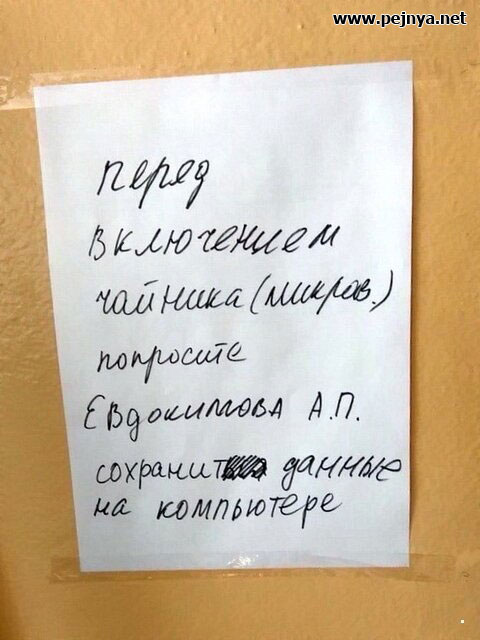 www.pejnya.net
перед
включением
чайника (микров.)
попросите
Евдокимова А.П.
сохранить данные
на компьютере